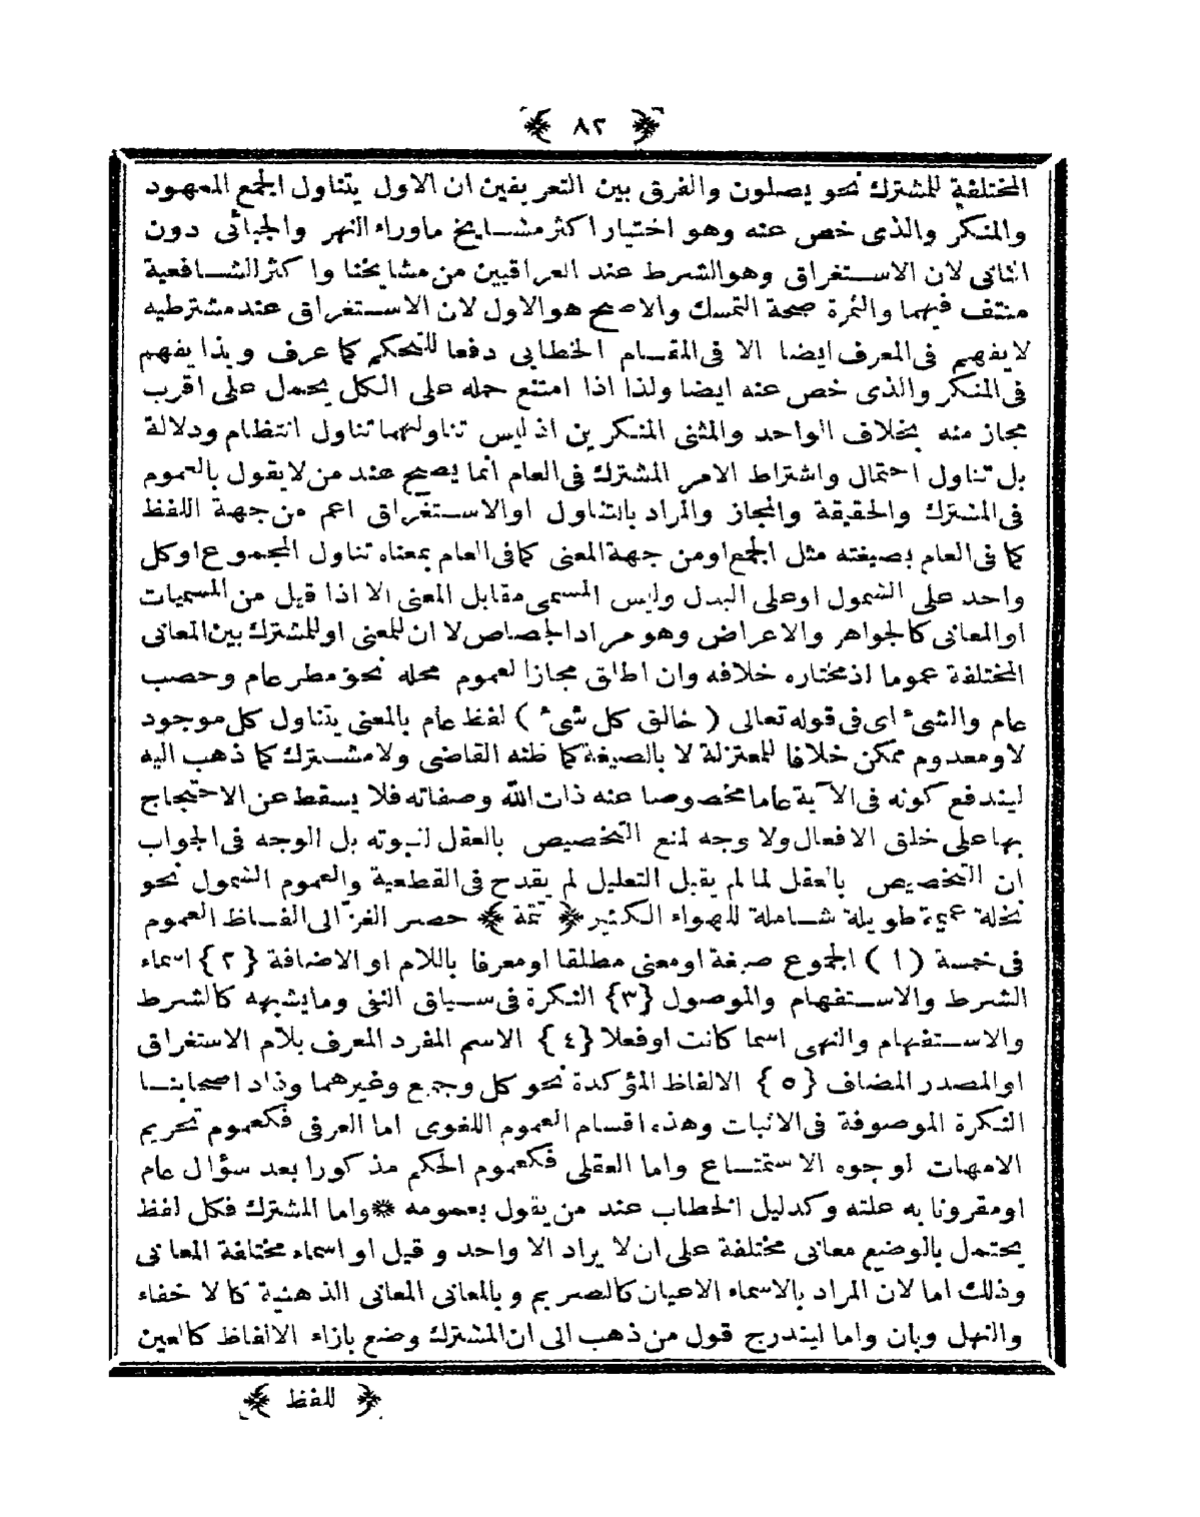 ﴿ ٨٢ ﴾
المختلفة للمشترك نحو يصلون والفرق بين التعريفين ان الاول يتناول الجمع المعهود
والمنكر والذى خص عنه وهو اختيار اكثر مشايخ ماوراء النهر والجبائى دون
الثانى لان الاستغراق وهو الشرط عند العراقيين من مشايخنا واكثر الشافعية
منتف فيهما والثمرة صحة التمسك والاصح هو الاول لان الاستغراق عند مشترطيه
لايفهم فى المعرف ايضا الا فى المقام الخطابى دفعا للتحكم كما عرف وبذا يفهم
فى المنكر والذى خص عنه ايضا ولذا اذا امتنع حمله على الكل يحمل على اقرب
مجاز منه بخلاف الواحد والمثنى المنكرين اذ ليس تناولهما تناول انتظام ودلالة
بل تناول احتمال واشتراط الامر المشترك فى العام انما يصح عند من لايقول بالعموم
فى المشترك والحقيقة والمجاز والمراد بالتناول اوالاستغراق اعم من جهة اللفظ
كما فى العام بصيغته مثل الجمع اومن جهة المعنى كما فى العام بمعناه تناول المجموع اوكل
واحد على الشمول اوعلى البدل وليس المسمى مقابل المعنى الا اذا قيل من المسميات
اوالمعانى كالجواهر والاعراض وهو مراد الجصاص لا ان للمعنى اوللمشترك بين المعانى
المختلفة عموما اذ مختاره خلافه وان اطلق مجازا لعموم محله نحو مطر عام وخصب
عام والشئ اى فى قوله تعالى ( خالق كل شئ ) لفظ عام بالمعنى يتناول كل موجود
لا ومعدوم ممكن خلافا للمعتزلة لا بالصيغة كما ظنه القاضى ولا مشترك كما ذهب اليه
ليندفع كونه فى الآية عاما مخصوصا عنه ذات الله وصفاته فلا يسقط عن الاحتجاج
بها على خلق الافعال ولا وجه لمنع التخصيص بالعقل لثبوته بل الوجه فى الجواب
ان التخصيص بالعقل لما لم يقبل التعليل لم يقدح فى القطعية والعموم الشمول نحو
نخلة عميمة طويلة شاملة للهواء الكثير ﴿ تتمة ﴾ حصر الغزالى الفاظ العموم
فى خمسة ( ١ ) الجموع صيغة اومعنى مطلقا اومعرفا باللام او الاضافة { ٢ } اسماء
الشرط والاستفهام والموصول {٣} النكرة فى سياق النفى ومايشبهه كالشرط
والاستفهام والنهى اسما كانت اوفعلا {٤ } الاسم المفرد المعرف بلام الاستغراق
اوالمصدر المضاف { ٥ } الالفاظ المؤكدة نحو كل وجميع وغيرهما وزاد اصحابنا
النكرة الموصوفة فى الاثبات وهذه اقسام العموم اللغوى اما العرفى فكعموم تحريم
الامهات لوجوه الاستمتاع واما العقلى فكعموم الحكم مذكورا بعد سؤال عام
اومقرونا به علته وكدليل الخطاب عند من يقول بعمومه * واما المشترك فكل لفظ
يحتمل بالوضع معانى مختلفة على ان لا يراد الا واحد وقيل او اسماء مختلفة المعانى
وذلك اما لان المراد بالاسماء الاعيان كالصريم وبالمعانى المعانى الذهنية كالاخفاء
والنهل وبان واما ليندرج قول من ذهب الى ان المشترك وضع بازاء الالفاظ كالعين
﴿ للفظ ﴾